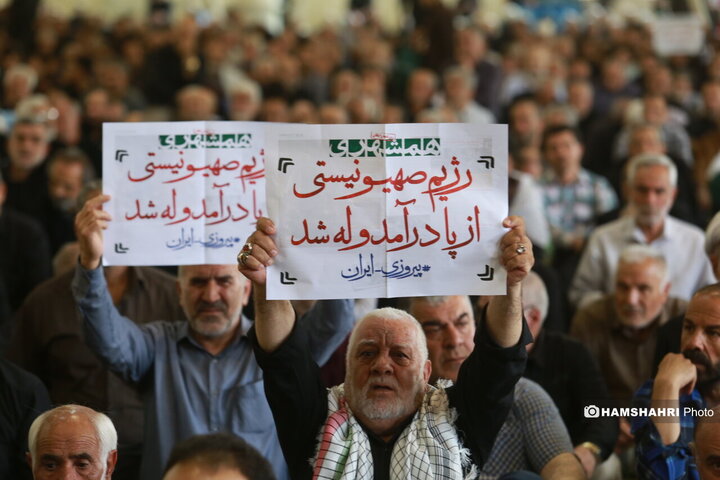 همشهری
رژیم صهیونیستی
از پا درآمد و له شد
#پیروزی_ایران
همشهری
رژیم صهیونیستی
از پا درآمد و له شد
#پیروزی_ایران
HAMSHAHRI Photo